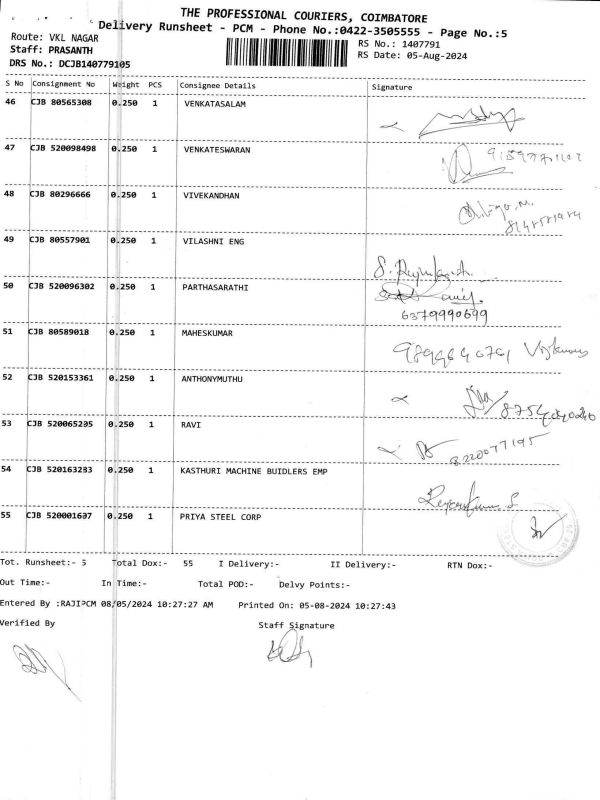 THE PROFESSIONAL COURIERS, COIMBATORE
Delivery Runsheet - PCM - Phone No.:0422-3505555 - Page No.:5
Route: VKL NAGAR
Staff: PRASANTH
DRS No.: DCJB140779105
RS No.: 1407791
RS Date: 05-Aug-2024
S No Consignment No Weight PCS Consignee Details Signature
46 CJB 80565308 0.250 1 VENKATASALAM
47 CJB 520098498 0.250 1 VENKATESWARAN
48 CJB 80296666 0.250 1 VIVEKANDHAN
49 CJB 80557901 0.250 1 VILASHNI ENG
50 CJB 520096302 0.250 1 PARTHASARATHI
6379990699
51 CJB 80589018 0.250 1 MAHESKUMAR
52 CJB 520153361 0.250 1 ANTHONYMUTHU
53 CJB 520065205 0.250 1 RAVI
8220077195
54 CJB 520163283 0.250 1 KASTHURI MACHINE BUIDLERS EMP
55 CJB 520001607 0.250 1 PRIYA STEEL CORP
Tot. Runsheet:- 5 Total Dox:- 55 I Delivery:- II Delivery:- RTN Dox:-
Out Time:- In Time:- Total POD:- Delvy Points:-
Entered By :RAJIPCM 08/05/2024 10:27:27 AM Printed On: 05-08-2024 10:27:43
Verified By Staff Signature